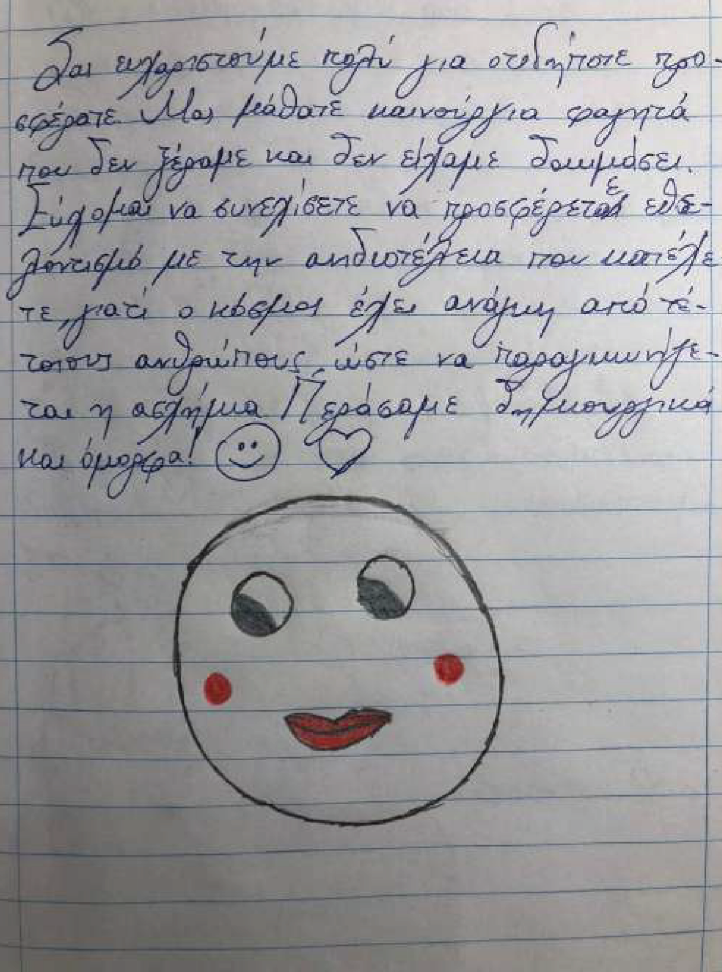 Σας ευχαριστούμε πολύ για οτιδήποτε προ-
σφέρατε. Μας μάθατε καινούργια φαγητά
που δεν ξέραμε και δεν είχαμε δοκιμάσει.
Εύχομαι να συνεχίσετε να προσφέρετε εθε-
λοντισμό με την ανιδιοτέλεια που κατέχε
τε, γιατί ο κόσμος έχει ανάγκη από τέ-
τοιους ανθρώπους, ώστε να παραγκωνίζε-
ται η ασχήμια Περάσαμε δημιουργικά
και όμορφα!